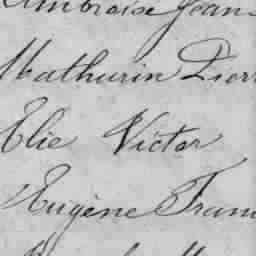 Ambroise Jean
Mathurin Pierr
Elie Victor
Eugène Fran